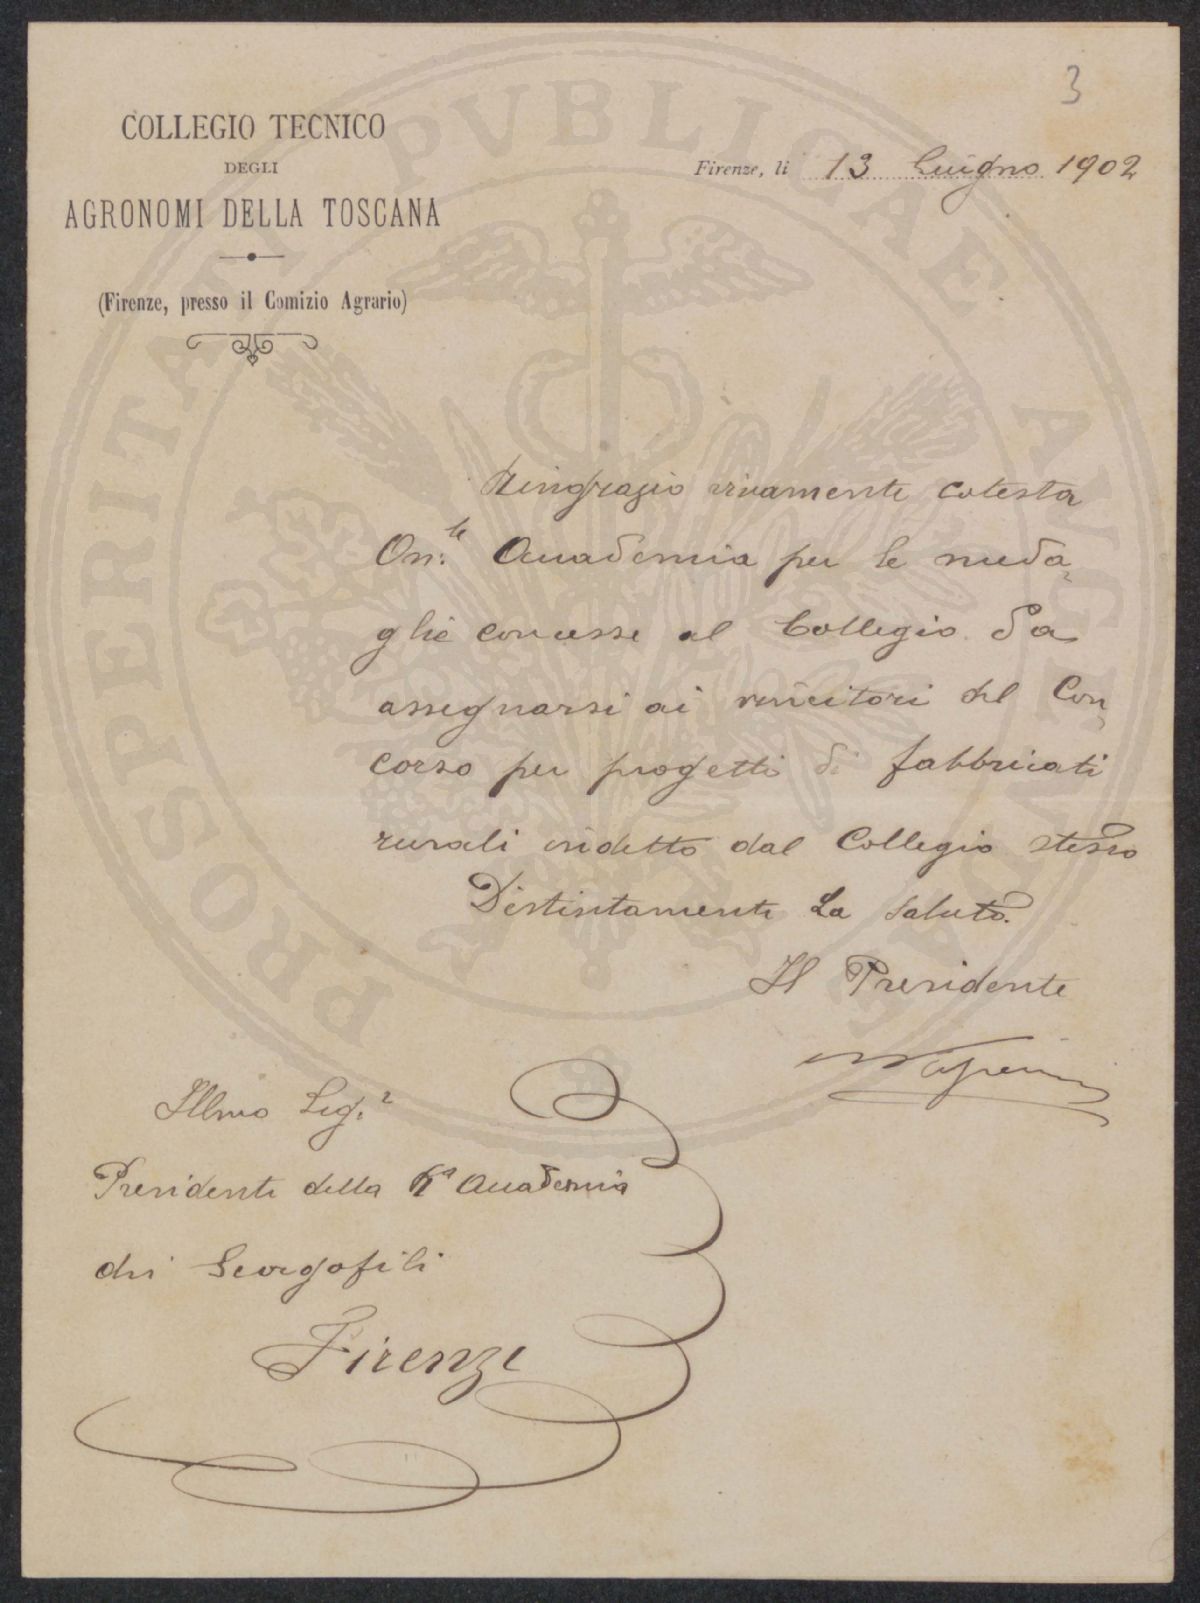 3
COLLEGIO TECNICO
DEGLI
AGRONOMI DELLA TOSCANA
(Firenze, presso il Comizio Agrario)
Firenze, li 13 Giugno 1902
Ringrazio vivamente cotesta
On.le Accademia per le meda-
glie concesse al Collegio da
assegnarsi ai vincitori del Con-
corso per progetti di fabbricati
rurali indetto dal Collegio stesso
Distintamente La saluto.
Il Presidente
Illmo Sig.r
Presidente della Ra Accademia
dei Georgofili
Firenze
PROSPERITATI PVBLICAE AVGENDAE